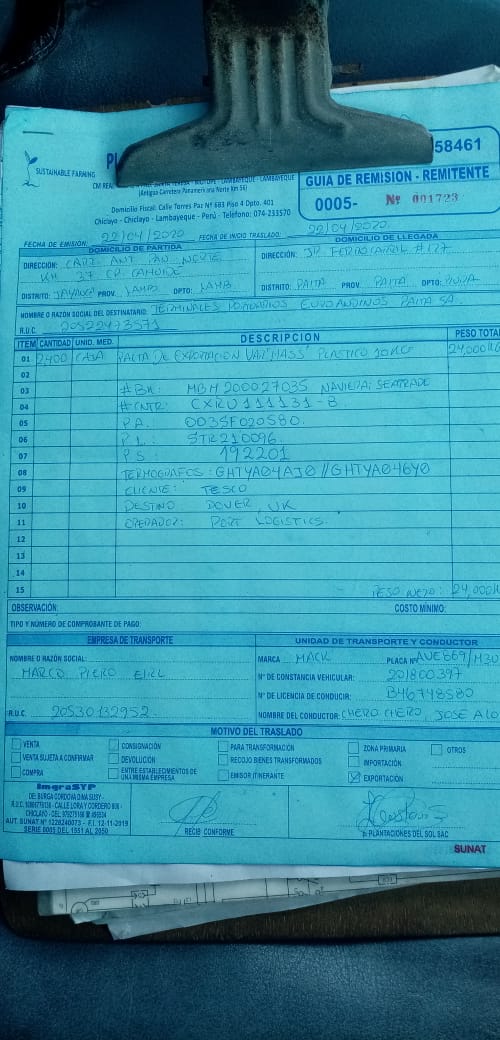 58461
SUSTAINABLE FARMING
GUIA DE REMISION - REMITENTE
(Antigua Carretera Panamericana Norte Km 56)
Domicilio Fiscal: Calle Torres Paz N° 683 Piso 4 Dpto. 401
Chiclayo - Chiclayo - Lambayeque - Perú - Teléfono: 074-233570
0005- Nº 001723
FECHA DE EMISIÓN: 22/04/2020 FECHA DE INICIO TRASLADO: 22/04/2020
DOMICILIO DE PARTIDA
DOMICILIO DE LLEGADA
DIRECCIÓN: CARR. ANT. PAN. NORTE
KM 37 CP.
DIRECCIÓN: JR. FERROCARRIL # 127
DISTRITO: PROV. LAMB DPTO: LAMB.
DISTRITO: PAITA PROV. PAITA DPTO: PIURA
NOMBRE O RAZÓN SOCIAL DEL DESTINATARIO: TERMINALES PORTUARIOS EUROANDINOS PAITA SA.
R.U.C. 20522473571
ITEM CANTIDAD UNID. MED. DESCRIPCION PESO TOTAL
01 2,400 CAJA PALTA DE EXPORTACION VAR "HASS" PLASTICO 10KG 24,000KG
02
03 #BK: MBH200027035 NAVIERA: SEATRADE
04 #CNTR: CXRU111131-8
05 P.A.: 0035F020580.
06 P.L.: STR210096.
07 P.S: 192201
08 TERMOGRAFOS: GHTYA04AJ0 // GHTYA046Y0
09 CLIENTE: TESCO
10 DESTINO DOVER, UK
11 OPERADOR: PORT LOGISTICS.
12
13
14
15 PESO NETO: 24,000K
OBSERVACIÓN: COSTO MÍNIMO:
TIPO Y NÚMERO DE COMPROBANTE DE PAGO:
EMPRESA DE TRANSPORTE
UNIDAD DE TRANSPORTE Y CONDUCTOR
NOMBRE O RAZÓN SOCIAL:
MARCO PIERO EIRL
R.U.C. 20530132952
MARCA MACK PLACA Nº AUE869/
N° DE CONSTANCIA VEHICULAR: 201800397
N° DE LICENCIA DE CONDUCIR: B46748580
NOMBRE DEL CONDUCTOR: CHERO CHERO, JOSE
MOTIVO DEL TRASLADO
VENTA
VENTA SUJETA A CONFIRMAR
COMPRA
CONSIGNACIÓN
DEVOLUCIÓN
ENTRE ESTABLECIMIENTOS DE UNA MISMA EMPRESA
PARA TRANSFORMACIÓN
RECOJO BIENES TRANSFORMADOS
EMISOR ITINERANTE
ZONA PRIMARIA
IMPORTACIÓN
EXPORTACIÓN
OTROS
ImgraSYP
DE: BURGA CORDOVA DINA SUSY -
CHICLAYO - CEL.
AUT. SUNAT N° 1228240073 - F.I. 12-11-2019
SERIE 0005 DEL 1551 AL 2050
RECIBÍ CONFORME
p. PLANTACIONES DEL SOL SAC
SUNAT